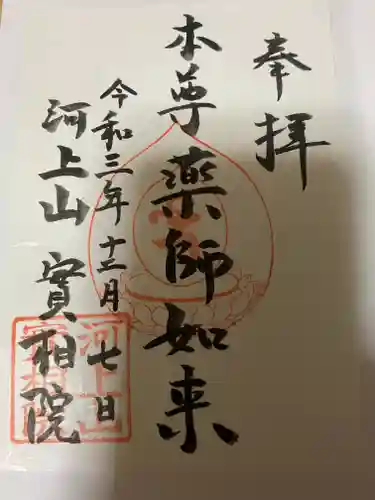 奉拝
本尊薬師如来
今和三年十二月七日
河上山實相院
河上山
實相院